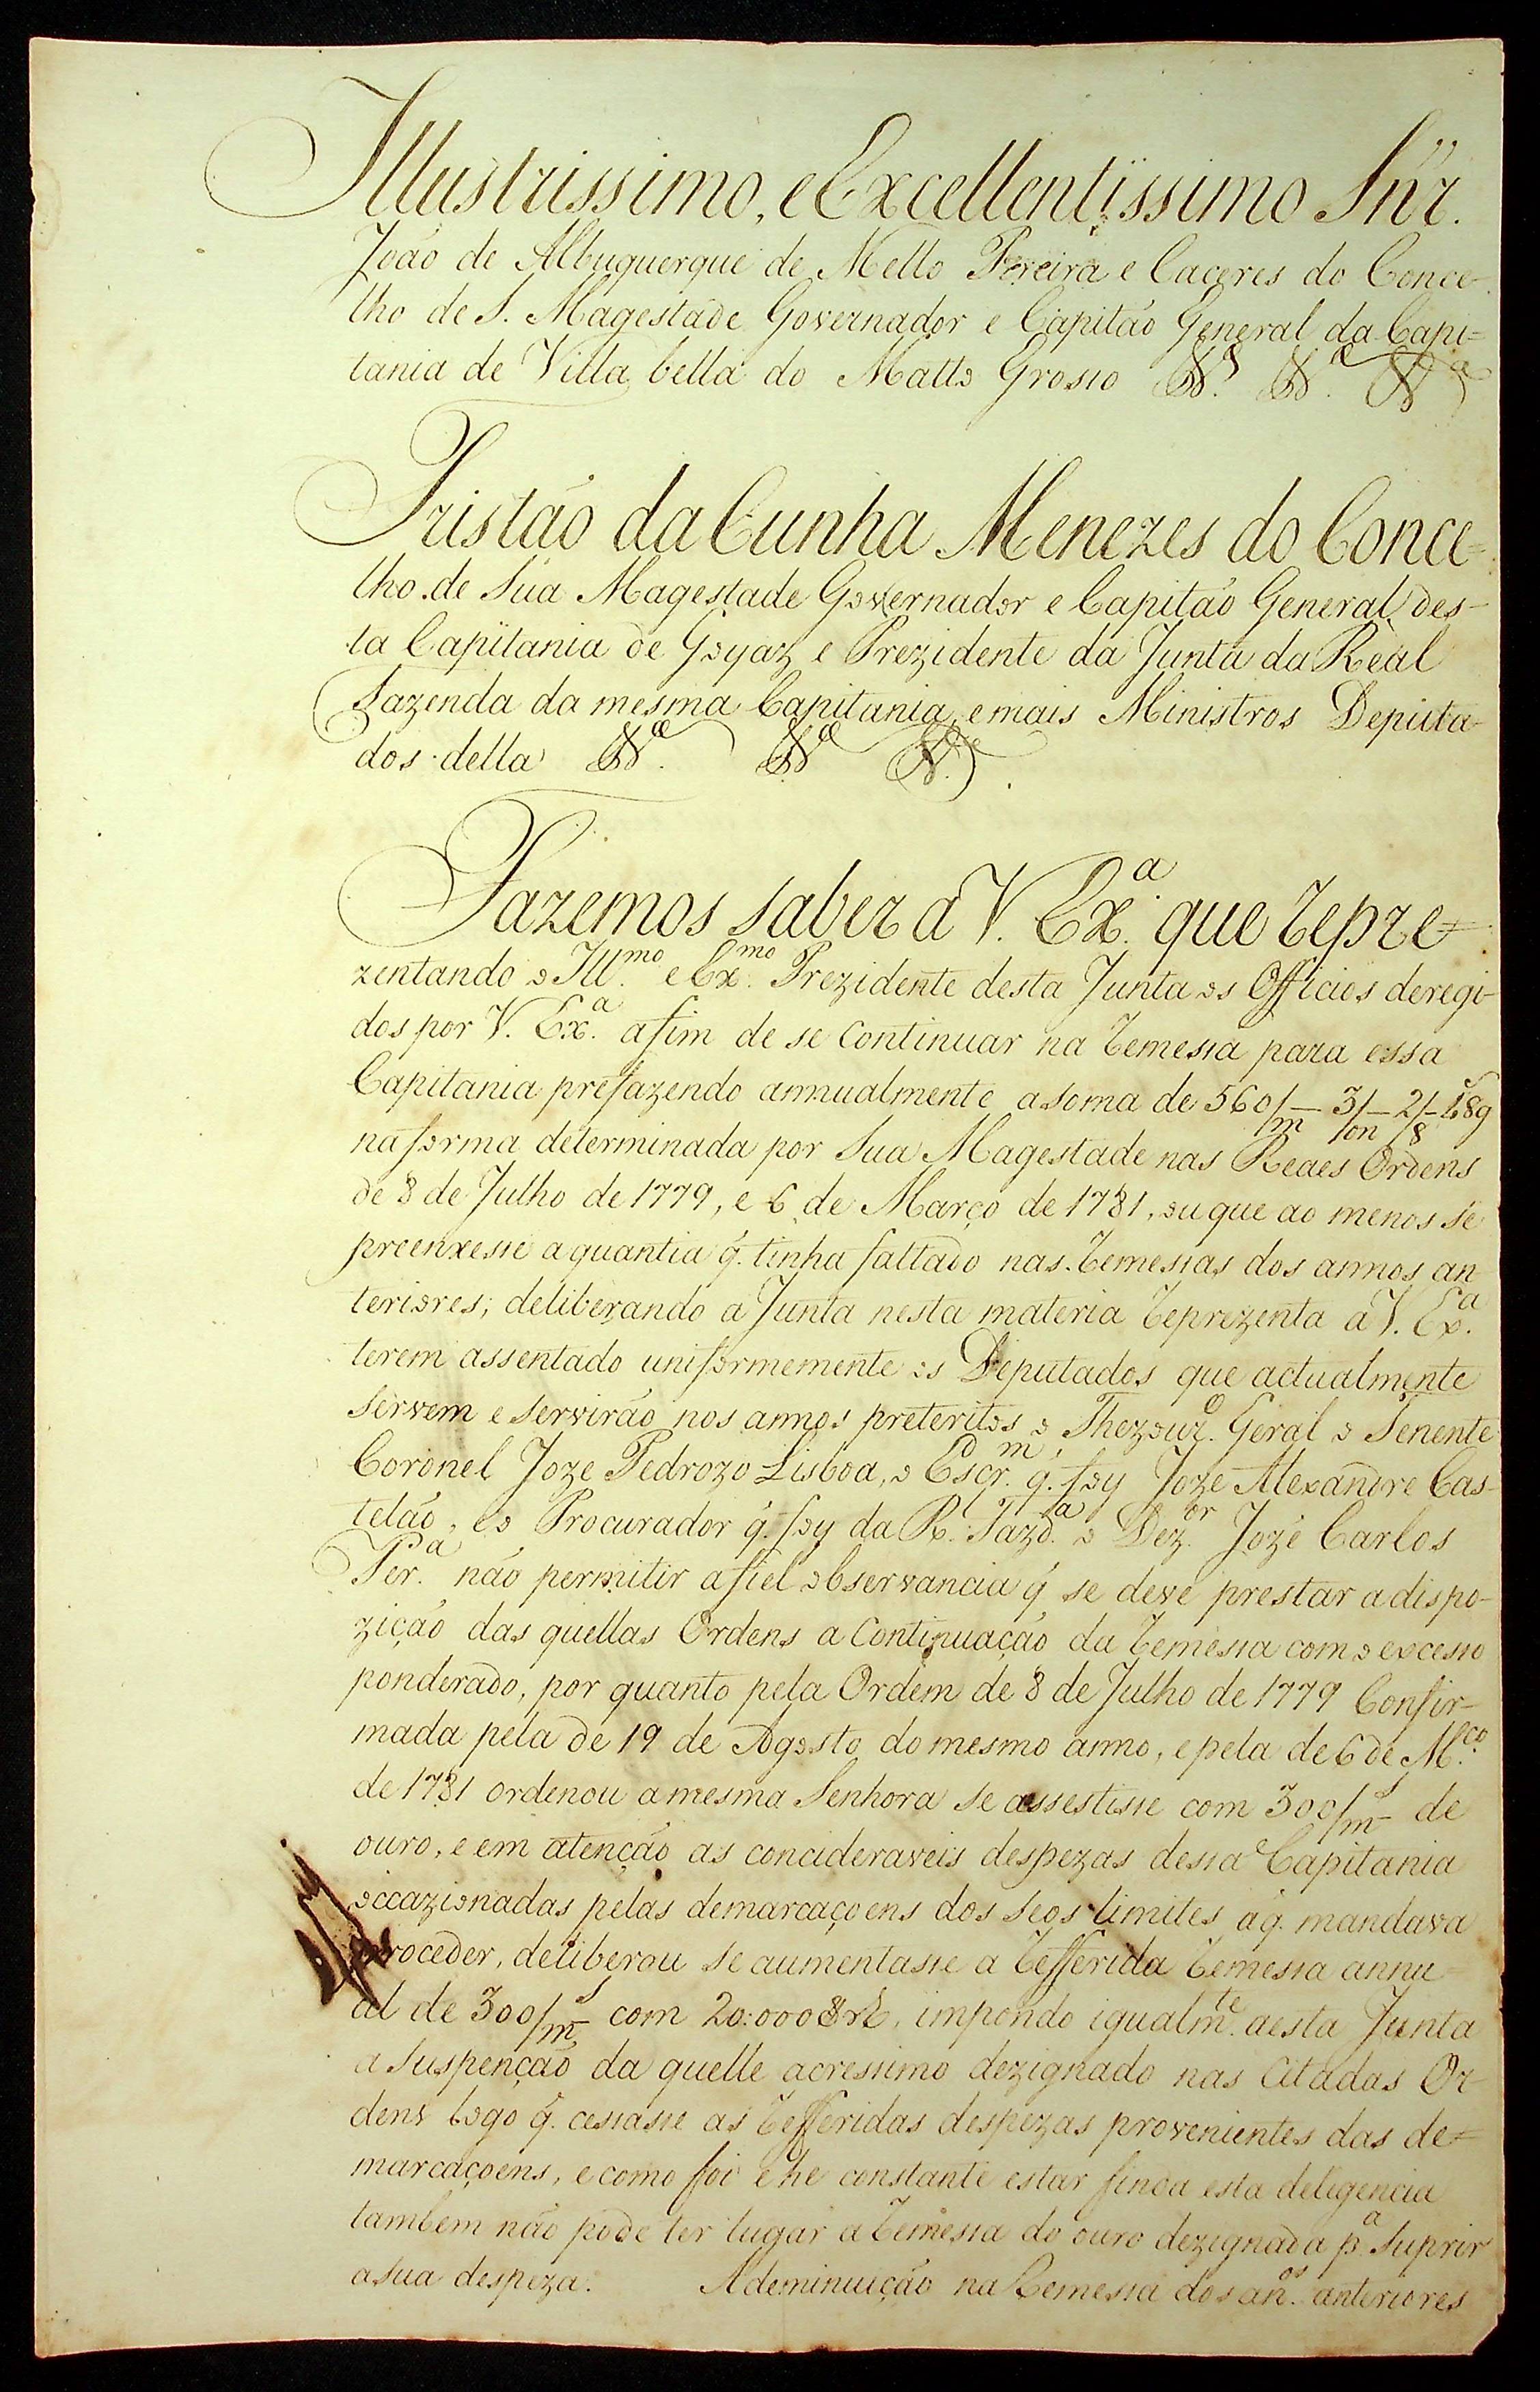 Illustrissimo, e Excellentissimo Snr.
João de Albuquerque de Mello Pereira e Caceres do Conce-
lho de S. Magestade Governador e Capitão General da Capi=
tania de Villa bella do Matto Grosso &ª. &ª. &ª
Tristão da Cunha Menezes do Conce=
lho de Sua Magestade Governador e Capitão General des-
ta Capitania de Goyaz e Prezidente da Junta da Real
Fazenda da mesma Capitania, e mais Ministros Deputa-
dos della &ª. &ª &ª.
Fazemos saber a V. Exª. que repre=
zentando o Illmo. e Exmo. Prezidente desta Junta os Officios deregi-
dos por V. Exª. afim de se Continuar na remessa para essa
Capitania prefazendo annualmente a soma de 560/m 3/on 2/8 18g
na forma determinada por Sua Magestade nas Reaes Ordens
de 8 de Julho de 1779, e 6 de Março de 1781, ou que ao menos se
preenxesse a quantia q̃. tinha faltado nas remessas dos annos an
teriores; deliberando a Junta nesta materia reprezenta a V. Exª.
terem assentado uniformemente os Deputados que actualmente
servem e servirão nos annos preteritos o Thezourº. Geral o Tenente
Coronel Joze Pedrozo Lisboa, o Escrm. q̃. foy Joze Alexandre Cas-
telão, e o Procurador q̃. foy da R. Fazdª. o Dezor. Jozé Carlos
Perª. não permitir a fiel observancia q̃ se deve prestar a dispo-
zição das quellas Ordens a Continuação da remessa com o excesso
ponderado, por quanto pela Ordem de 8 de Julho de 1779 Confir-
mada pela de 19 de Agosto do mesmo anno, e pela de 6 de Mço.
de 1781 ordenou a mesma Senhora se assestisse com 300/ms de
ouro, e em atenção as concideraveis despezas dessa Capitania
occazionadas pelas demarcaçoens dos seos limites, a q̃. mandava
proceder, deliberou se aumentasse a refferida remessa annu
al de 300/ms com 20:000 8as, impondo igualmte. a esta Junta
a Suspenção da quelle acressimo dezignado nas Citadas Or
dens logo q̃. cessasse as refferidas despezas provenientes das de=
marcaçoens, e como foi e he constante estar finda esta deligencia
tambem não pode ter lugar a remessa do ouro dezignada pª. Suprir
a sua despeza. A deminuição na Remessa dos anos. anteriores